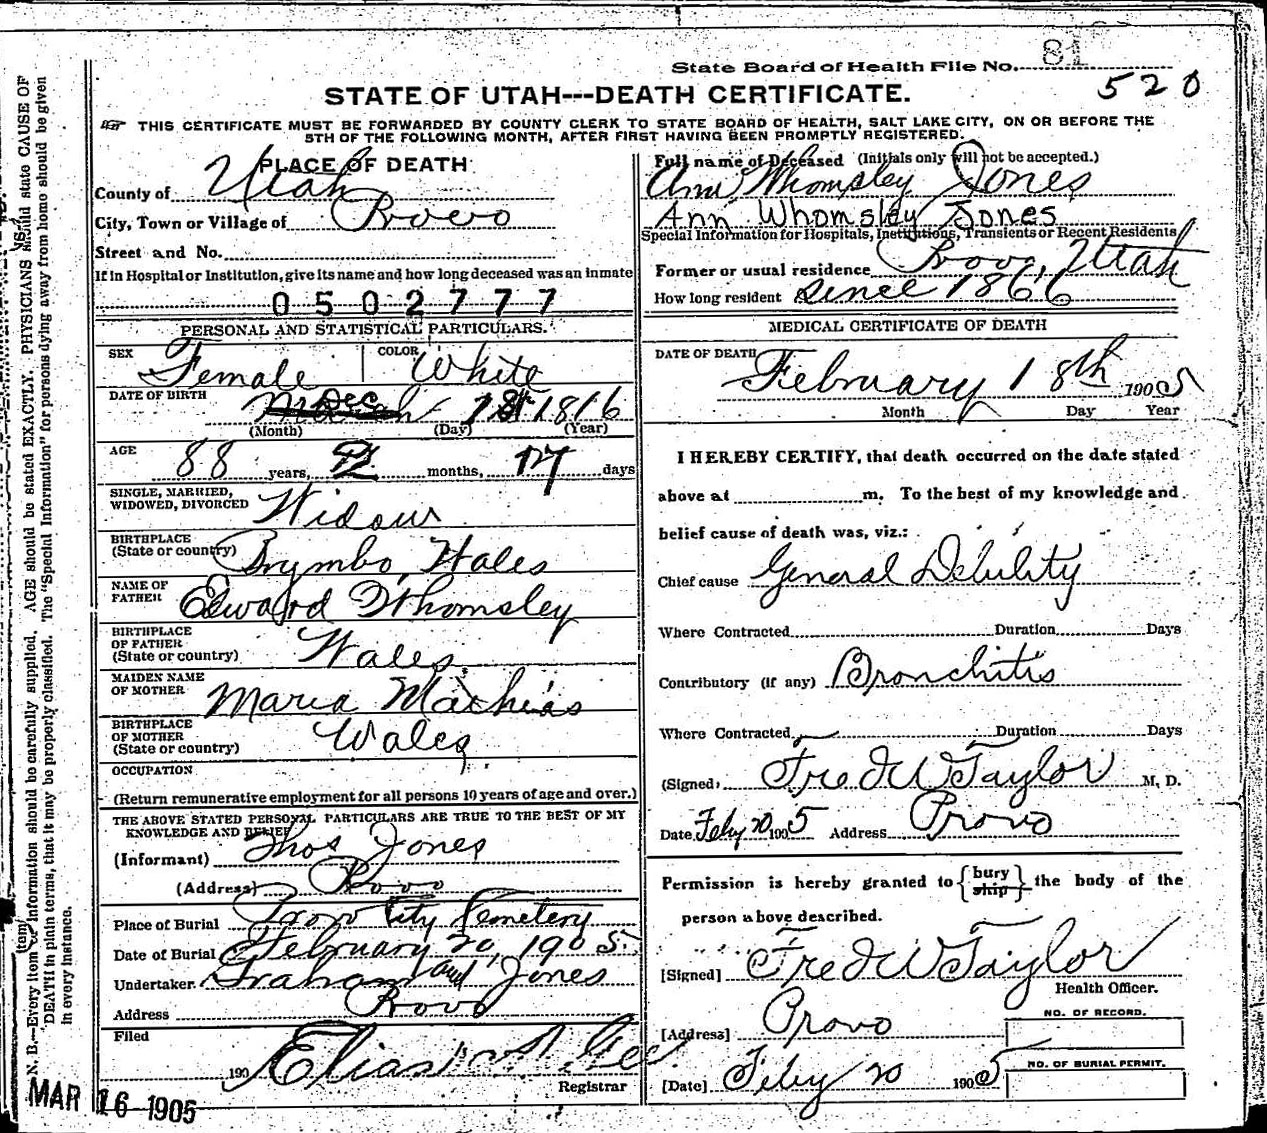 State Board of Health File No. 81
520
STATE OF UTAH---DEATH CERTIFICATE.
THIS CERTIFICATE MUST BE FORWARDED BY COUNTY CLERK TO STATE BOARD OF HEALTH, SALT LAKE CITY, ON OR BEFORE THE
5TH OF THE FOLLOWING MONTH, AFTER FIRST HAVING BEEN PROMPTLY REGISTERED.
PLACE OF DEATH
County of Utah
City, Town or Village of Provo
Street and No.
If in Hospital or Institution, give its name and how long deceased was an inmate
0502777
PERSONAL AND STATISTICAL PARTICULARS.
SEX Female COLOR White
DATE OF BIRTH Dec 1st 1816
(Month) (Day) (Year)
AGE 88 years, 2 months, 17 days
SINGLE, MARRIED,
WIDOWED, DIVORCED Widow
BIRTHPLACE
(State or country) Brymbo, Wales
NAME OF
FATHER Edward Whomsley
BIRTHPLACE
OF FATHER
(State or country) Wales
MAIDEN NAME
OF MOTHER Maria Mathias
BIRTHPLACE
OF MOTHER
(State or country) Wales
OCCUPATION
(Return remunerative employment for all persons 10 years of age and over.)
THE ABOVE STATED PERSONAL PARTICULARS ARE TRUE TO THE BEST OF MY
KNOWLEDGE AND BELIEF
(Informant) Thos Jones
(Address) Provo
Place of Burial Provo City Cemetery
Date of Burial February 20, 1905.
Undertaker. Graham and Jones
Address Provo
Filed
190 Elias A. Gee
Registrar
MAR 16 1905
Full name of Deceased (Initials only will not be accepted.)
Ann Whomsley Jones
Ann Whomsley Jones
Special Information for Hospitals, Institutions, Transients or Recent Residents
Former or usual residence Provo, Utah
How long resident since 1866
MEDICAL CERTIFICATE OF DEATH
DATE OF DEATH February 18th 1905
Month Day Year
I HEREBY CERTIFY, that death occurred on the date stated
above at m. To the best of my knowledge and
belief cause of death was, viz.:
Chief cause General Debility
Where Contracted Duration Days
Contributory (if any) Bronchitis
Where Contracted Duration Days
(Signed) Fred W Taylor M, D.
Date Feby 20 1905 Address Provo
Permission is hereby granted to {bury ship} the body of the
person above described.
[Signed] Fred W Taylor
Health Officer.
[Address] Provo
NO. OF RECORD.
[Date] Feby 20 1905
NO. OF BURIAL PERMIT.
N. B.—Every item of information should be carefully supplied. AGE should be stated EXACTLY. PHYSICIANS should state CAUSE OF
DEATH in plain terms, that it may be properly classified. The "Special Information" for persons dying away from home should be given
in every instance.